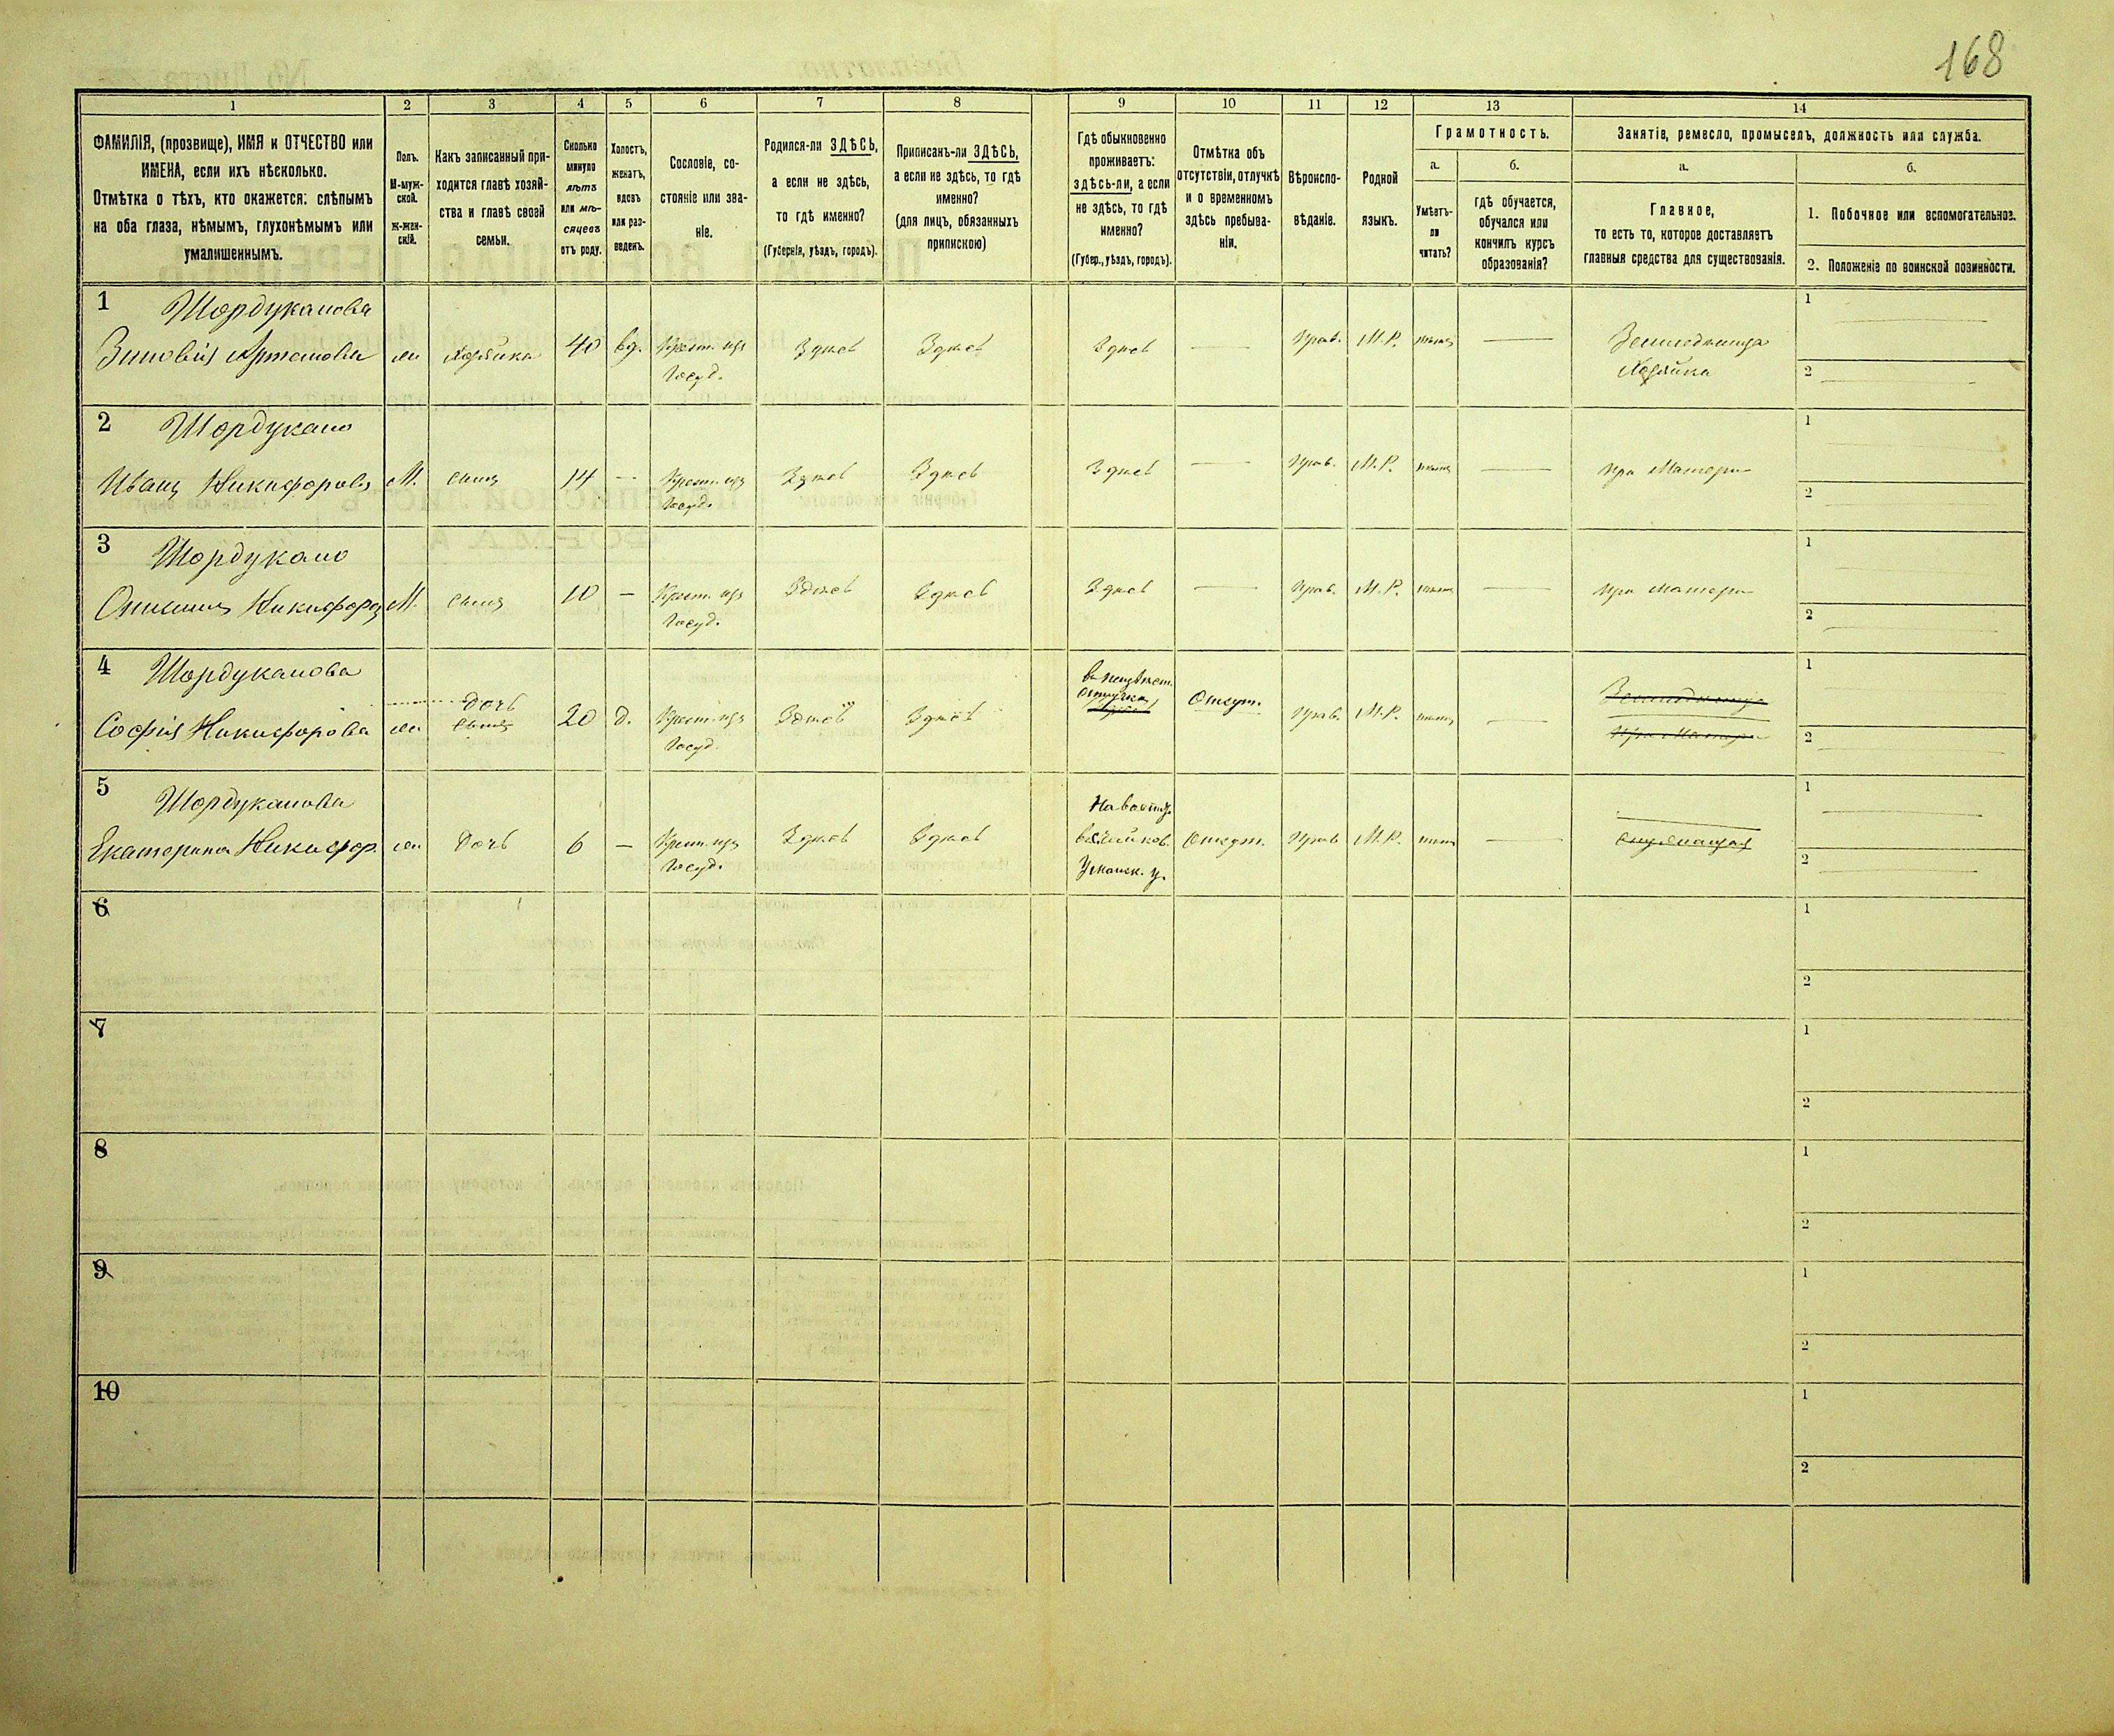 168
1
2
3
4
5
6
7
8
9
10
11
12
13
14
ФАМИЛІЯ, (прозвище), ИМЯ и ОТЧЕСТВО или
ИМЕНА, если ихъ нѣсколько.
Отмѣтка о тѣхъ, кто окажется: слѣпымъ
на оба глаза, нѣмымъ, глухонѣмымъ или
умалишеннымъ.
Полъ.
М-муж-
ской.
Ж-жен-
скій.
Какъ записанный при-
ходится главѣ хозяй-
ства и главѣ своей
семьи.
Сколько
минуло
лѣтъ
или мѣ-
сяцевъ
отъ роду.
Холостъ,
женатъ,
вдовъ
или раз-
веденъ.
Сословіе, со-
стояніе или зва-
ніе.
Родился-ли ЗДѢСЬ,
а если не здѣсь,
то гдѣ именно?
(Губернія, уѣздъ, городъ).
Приписанъ-ли ЗДѢСЬ,
а если не здѣсь, то гдѣ
именно?
(для лицъ, обязанныхъ
припискою)
Гдѣ обыкновенно
проживаетъ:
здѣсь-ли, а если
не здѣсь, то гдѣ
именно?
(Губер., уѣздъ, городъ).
Отмѣтка объ
отсутствіи, отлучкѣ
и о временномъ
здѣсь пребыва-
ніи.
Вѣроиспо-
вѣданіе.
Родной
языкъ.
Грамотность.
а.
Умѣетъ-
ли
читать?
б.
гдѣ обучается,
обучался или
кончилъ курсъ
образованія?
Занятіе, ремесло, промыселъ, должность или служба.
а.
Главное,
то есть то, которое доставляетъ
главныя средства для существованія.
б.
1. Побочное или вспомогательное.
2. Положеніе по воинской повинности.
1 Шордуканова
Зиновія Артемова жн Хозяйка 40 вд. Крест. изъ Здѣсь Здѣсь Здѣсь — Прав. М.Р. нѣтъ —
Госуд.
Хозяйка
1
2
2 Шордукано
Иванъ Никифоровъ М. сынъ 14 — Крест. изъ Здѣсь Здѣсь Здѣсь — Прав. М.Р. нѣтъ — при Матери
Госуд.
1
2
3 Шордукано
Никифоръ М. сынъ 10 — Крест. изъ Здѣсь Здѣсь Здѣсь — Прав. М.Р. нѣтъ — при матери
Госуд.
1
2
4 Шордуканова
Софія Никифорова жн дочь сынъ 20 д. Крест. изъ Здѣсь Здѣсь
Госуд.
Отсут. Прав. М.Р. нѣтъ —
при Матери
1
2
5 Шордуканова
Екатерина Никифор. жн дочь 6 — Крест. изъ Здѣсь Здѣсь
Госуд.
Уманск. у.
Отсут. Прав М.Р. нѣтъ —
1
2
6
1
2
7
1
2
8
1
2
9
1
2
10
1
2